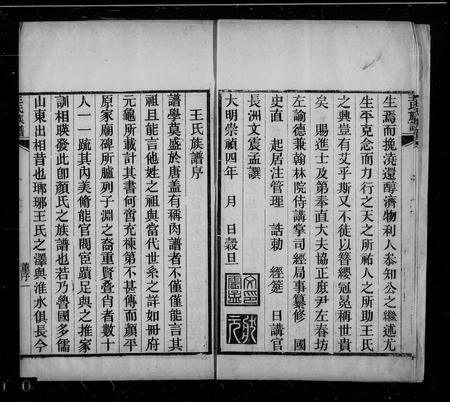 生焉而挽澆還醇濟物利人叅知公之繼述尤
生平克念而力行之天之所祐人之所助王氏
之興豈有艾乎斯又不徒以簪纓冠冕稱世貴
矣　賜進士及第奉直大夫協正庶尹左春坊
左諭德兼翰林院侍講掌司經局事纂修　國
史直　起居注管理　誥勅　經筵　日講官
長洲文震孟譔
大明崇禎四年　月　日穀旦
王氏族譜序
譜學莫盛於唐蓋有稱肉譜者不僅僅能言其
祖且能言他姓之祖與當代世系之詳如冊府
元龜所載計其書何啻充棟第不甚傳而顏平
原家廟碑所臚列子淵之裔重賢疊肖者數十
人一一䟽其內美脩能官閥宦蹟足與之推家
訓相暎發此卽顏氏之族譜也若乃魯國多儒
山東出相昔也瑯琊王氏之澤與淮水俱長今
王氏族譜